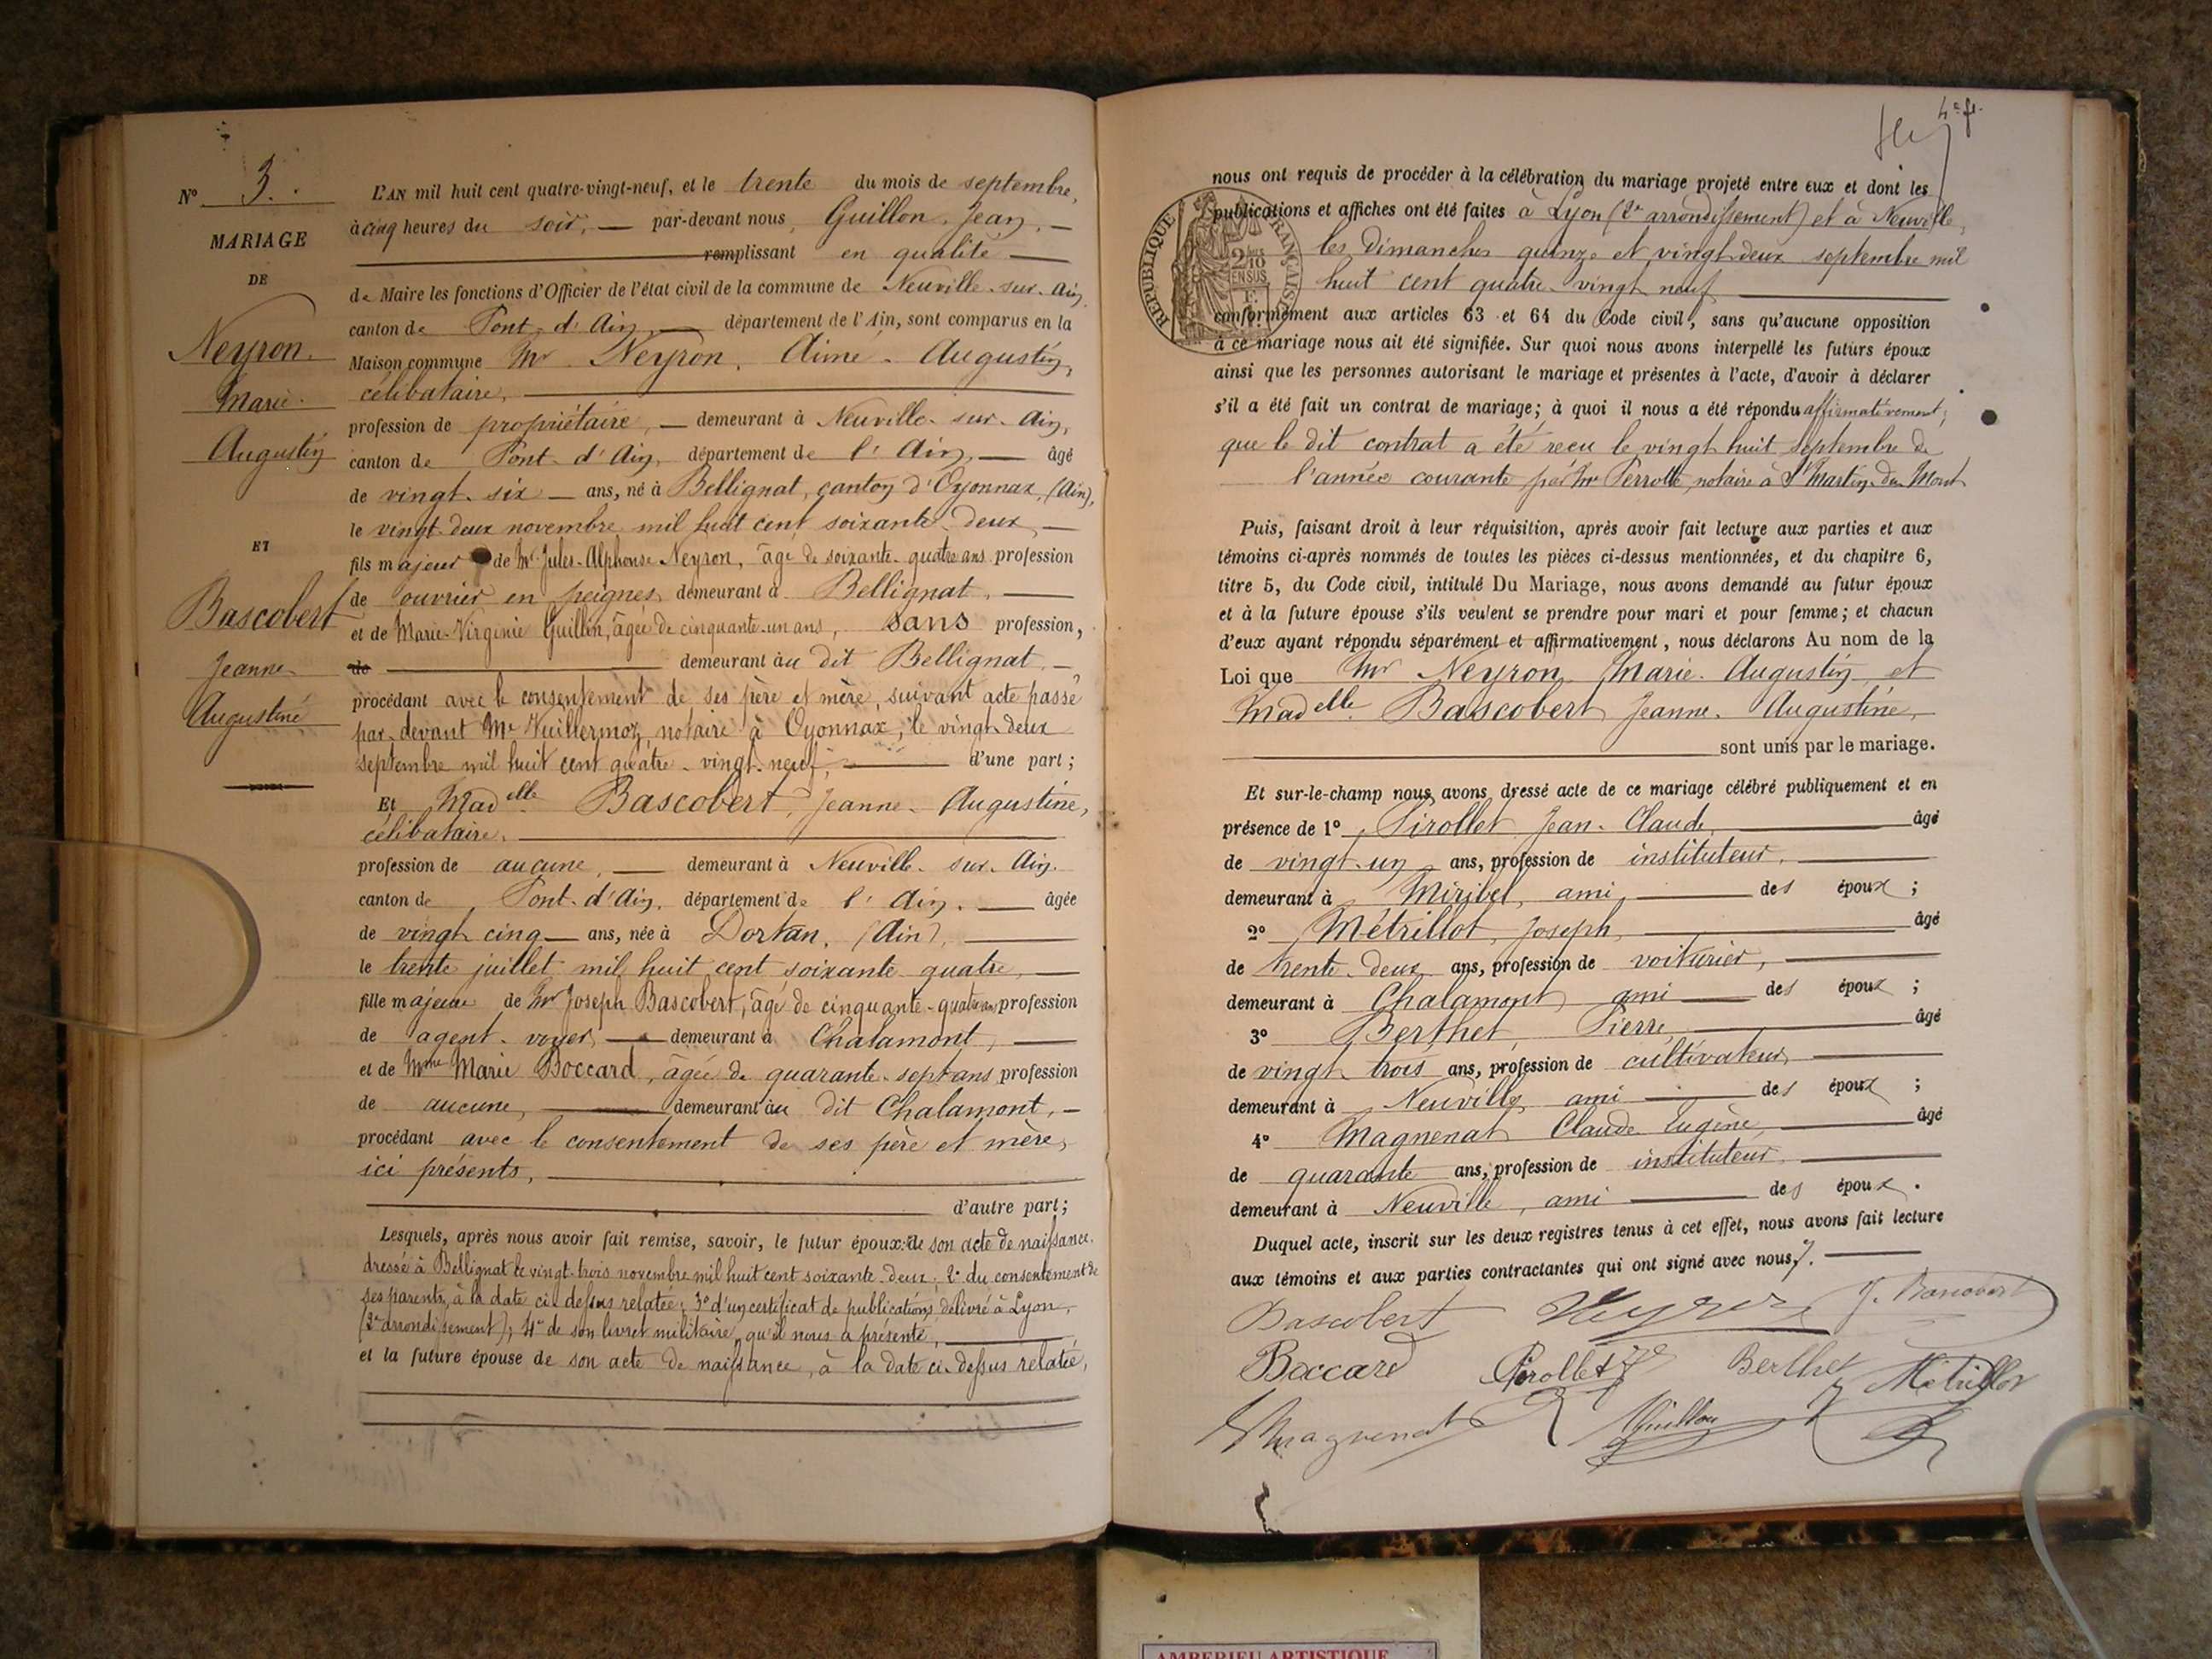 N° 3.
MARIAGE
DE
Neyron
Marie
Augustin
ET
Bascobert
Jeanne
Augustine
L'AN mil huit cent quatre-vingt-neuf, et le trente du mois de septembre,
à cinq heures du soir, par-devant nous, Guillon, Jean,
remplissant en qualité
de Maire les fonctions d'Officier de l'état civil de la commune de Neuville-sur-Ain,
canton de Pont-d'Ain, département de l'Ain, sont comparus en la
Maison commune Mr Neyron, Aimé-Augustin,
célibataire,
profession de propriétaire, demeurant à Neuville-sur-Ain,
canton de Pont-d'Ain, département de l'Ain, âgé
de vingt-six ans, né à Bellignat, canton d'Oyonnax, (Ain),
le vingt-deux novembre mil huit cent soixante-deux,
fils majeur de Mr Jules-Alphonse Neyron, âgé de soixante-quatre ans profession
de ouvrier en peignes, demeurant à Bellignat,
et de Marie-Virginie Guillin, âgée de cinquante-un ans, sans profession,
de demeurant au dit Bellignat,
procédant avec le consentement de ses père et mère, suivant acte passé
par-devant Me Vuillermoz, notaire à Oyonnax, le vingt-deux
septembre mil huit cent quatre-vingt-neuf, d'une part;
Et Madelle Bascobert, Jeanne-Augustine,
célibataire,
profession de aucune, demeurant à Neuville-sur-Ain.
canton de Pont-d'Ain, département de l'Ain, âgée
de vingt cinq ans, née à Dortan, (Ain),
le trente juillet mil huit cent soixante-quatre,
fille majeure de Mr Joseph Bascobert, âgé de cinquante-quatre ans profession
de agent-voyer, demeurant à Chalamont,
et de Mme Marie Boccard, âgée de quarante-sept ans, profession
de aucune, demeurant au dit Chalamont,
procédant avec le consentement de ses père et mère,
ici présents,
d'autre part;
Lesquels, après nous avoir fait remise, savoir, le futur époux: de son acte de naissance,
dressé à Bellignat le vingt-trois novembre mil huit cent soixante-deux; 2° du consentement de
ses parents, à la date ci-dessus relatée; 3° d'un certificat de publications délivré à Lyon,
(2e arrondissement); 4° de son livret militaire qu'il nous a présenté,
et la future épouse de son acte de naissance, à la date ci-dessus relatée,
nous ont requis de procéder à la célébration du mariage projeté entre eux et dont les
publications et affiches ont été faites à Lyon (2e arrondissement) et à Neuville,
les dimanches quinze et vingt-deux septembre mil
huit cent quatre-vingt neuf
RÉPUBLIQUE FRANÇAISE
conformément aux articles 63 et 64 du Code civil, sans qu'aucune opposition
à ce mariage nous ait été signifiée. Sur quoi nous avons interpellé les futurs époux
ainsi que les personnes autorisant le mariage et présentes à l'acte, d'avoir à déclarer
s'il a été fait un contrat de mariage; à quoi il nous a été répondu affirmativement,
que le dit contrat a été reçu le vingt huit septembre de
l'année courante par Me Perrotte, notaire à St Martin-du-Mont
Puis, faisant droit à leur réquisition, après avoir fait lecture aux parties et aux
témoins ci-après nommés de toutes les pièces ci-dessus mentionnées, et du chapitre 6,
titre 5, du Code civil, intitulé Du Mariage, nous avons demandé au futur époux
et à la future épouse s'ils veulent se prendre pour mari et pour femme; et chacun
d'eux ayant répondu séparément et affirmativement, nous déclarons Au nom de la
Loi que Mr Neyron Marie-Augustin et
Madelle Bascobert Jeanne-Augustine,
sont unis par le mariage.
Et sur-le-champ nous avons dressé acte de ce mariage célébré publiquement et en
présence de 1° Pirollet Jean-Claude, âgé
de vingt-un ans, profession de instituteur,
demeurant à Miribel, ami des époux;
2° Métrillot, Joseph, âgé
de trente-deux ans, profession de voiturier,
demeurant à Chalamont ami des époux;
3° Berthet, Pierre, âgé
de vingt trois ans, profession de cultivateur,
demeurant à Neuville, ami des époux;
4° Magnenat Claude Eugène, âgé
de quarante ans, profession de instituteur,
demeurant à Neuville, ami des époux.
Duquel acte, inscrit sur les deux registres tenus à cet effet, nous avons fait lecture
aux témoins et aux parties contractantes qui ont signé avec nous.
Bascobert Neyron J. Bascobert
Boccard Pirollet Berthet Métrillot
Magnenat Guillon
AMBERIEU ARTISTIQUE